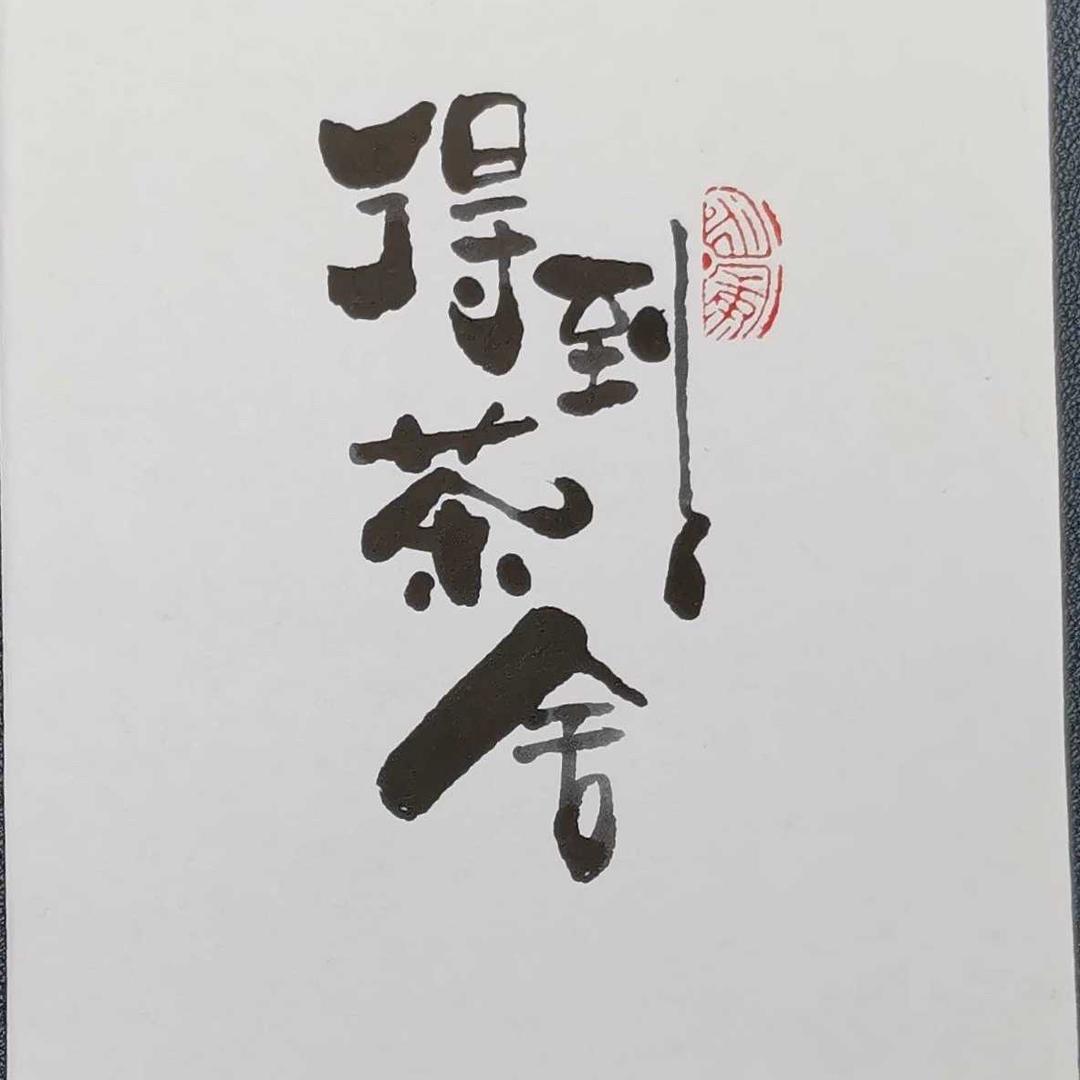 得到茶舍